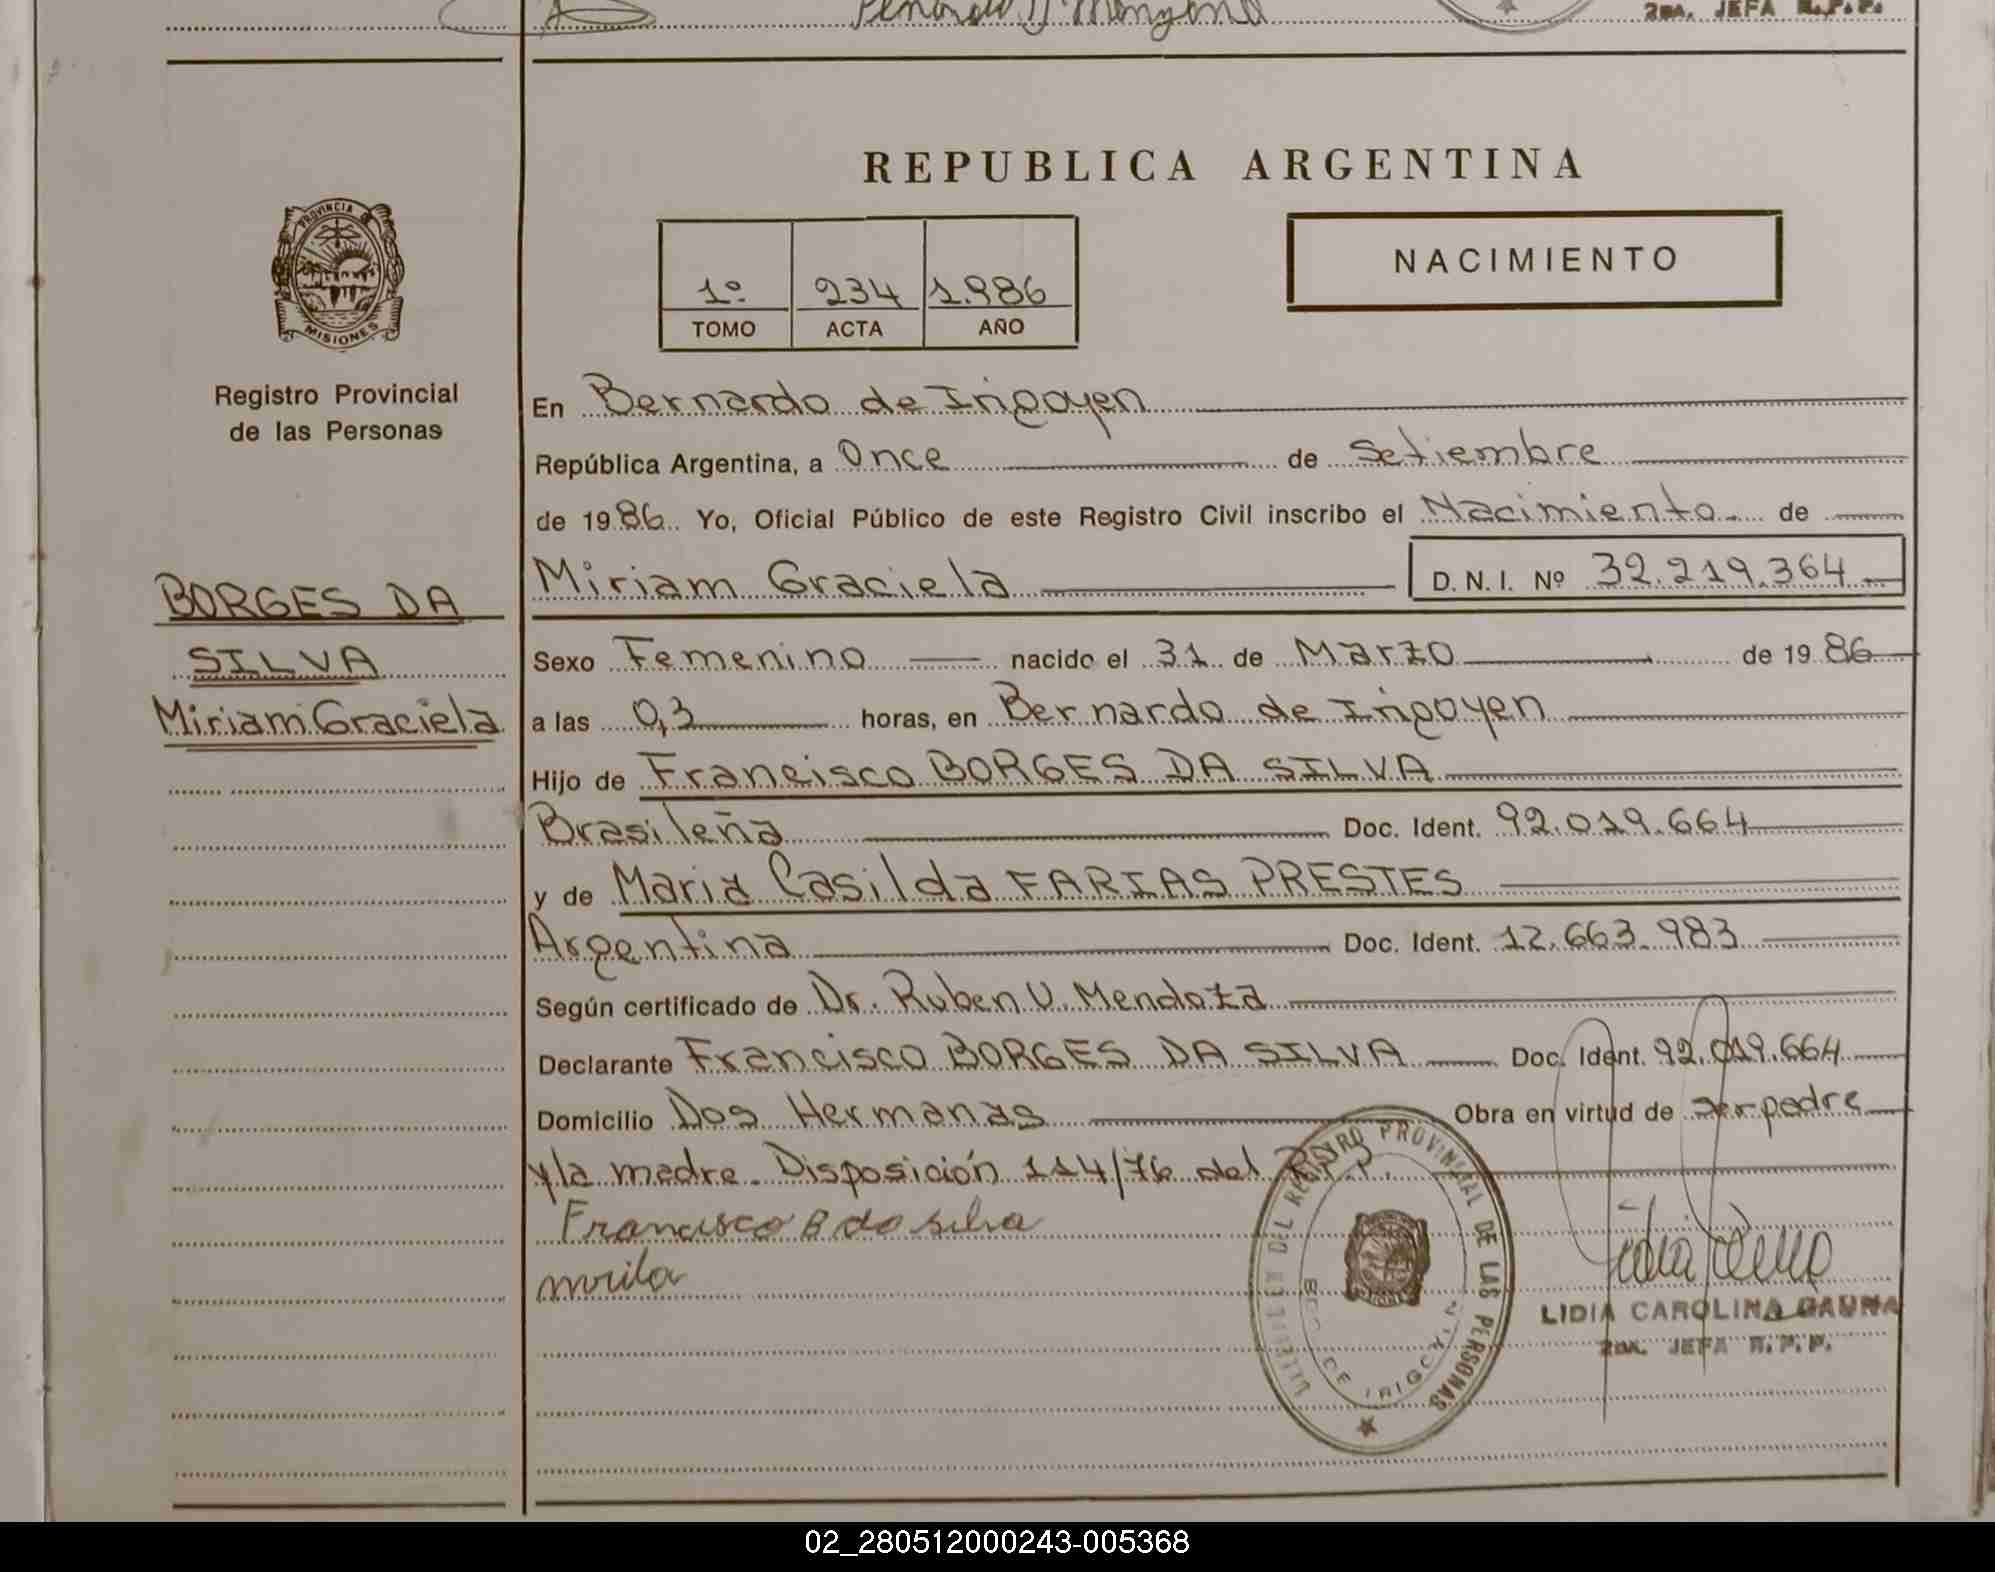 2DA. JEFA R.P.P.
REPUBLICA ARGENTINA
PROVINCIA DE
MISIONES
Registro Provincial
de las Personas
1º 234 1.986
TOMO ACTA AÑO
NACIMIENTO
En Bernardo de Irigoyen
República Argentina, a Once de Setiembre
de 1986 Yo, Oficial Público de este Registro Civil inscribo el Nacimiento de
BORGES DA
SILVA
Miriam Graciela
Miriam Graciela D.N.I. Nº 32.219.364
Sexo Femenino nacido el 31 de Marzo de 1986
a las 0,3 horas, en Bernardo de Irigoyen
Hijo de Francisco BORGES DA SILVA
Brasileña Doc. Ident. 92.019.664
y de Maria Casilda FARIAS PRESTES
Argentina Doc. Ident. 12.663.983
Según certificado de Dr. Ruben V. Mendoza
Declarante Francisco BORGES DA SILVA Doc. Ident. 92.019.664
Domicilio Dos Hermanas Obra en virtud de ser padre
y la madre. Disposición 114/76 del R.P.P.
Francisco B do silva
DEL REGISTRO PROVINCIAL DE LAS PERSONAS
DE IRIGOYEN
LIDIA CAROLINA GAUNA
2DA. JEFA R.P.P.
02_280512000243-005368